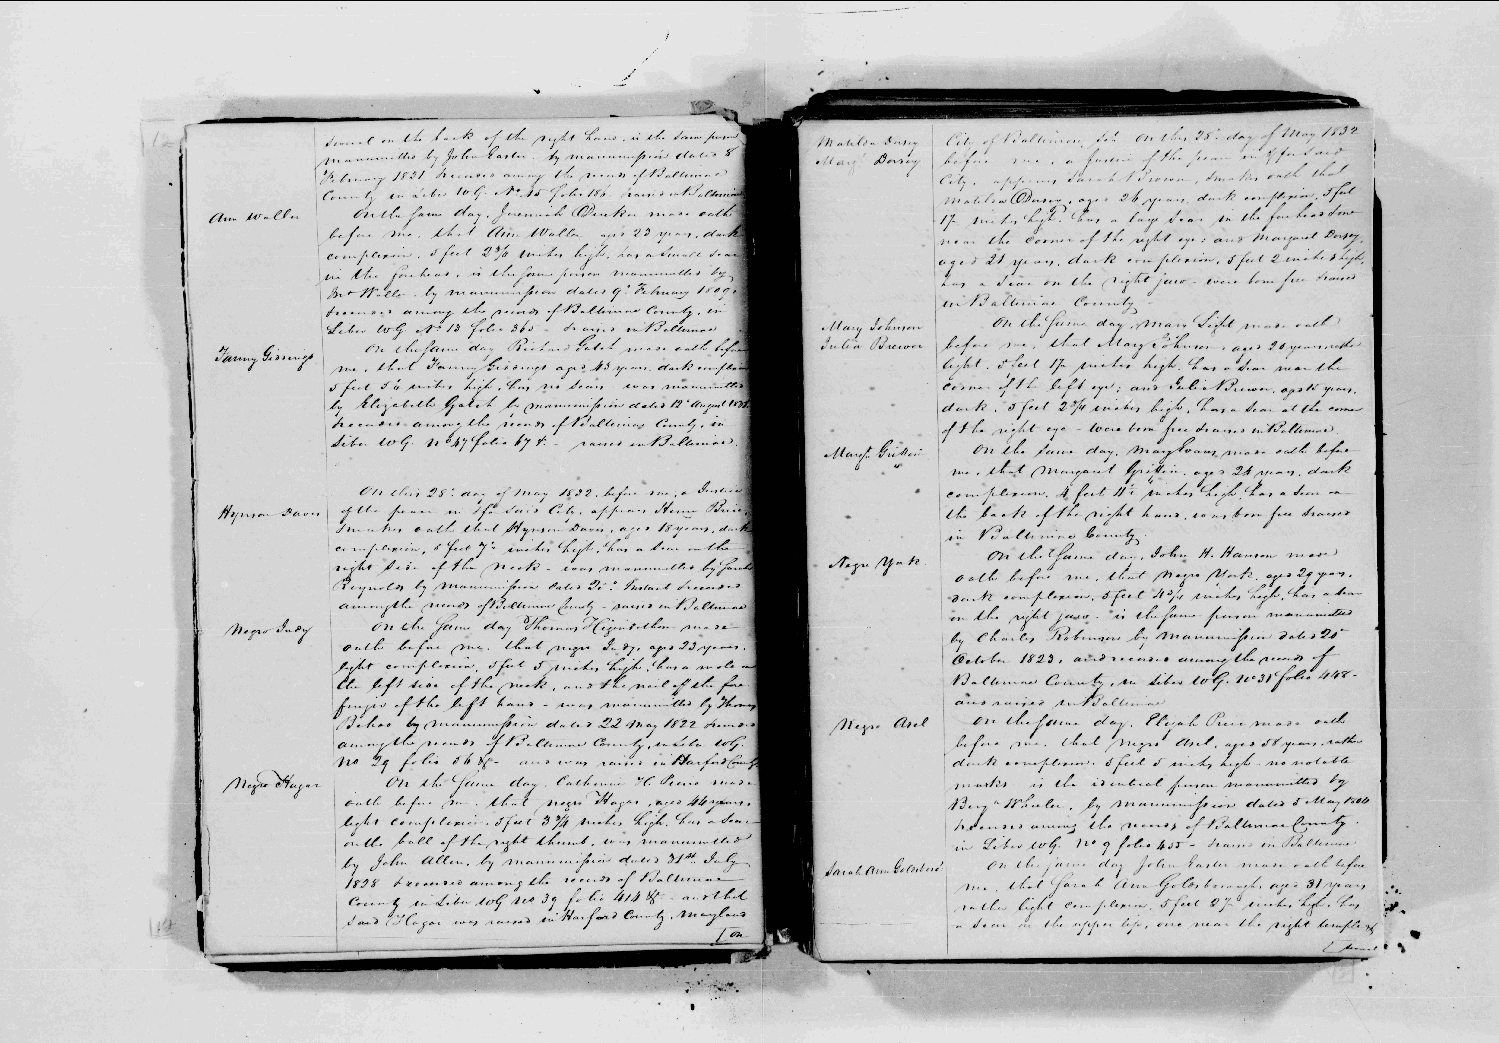 second on the back of the right hand, is the same person
manumitted by John Easter, by manumission dated 8
February 1831 & recorded among the records of Baltimore
County in Liber W.G. No. folio 186 raised in Baltimore
Ann Waller
On the same day, Jeremiah Ducker made oath
before me, that Ann Waller aged 23 years, dark
complexion, 5 feet inches high, has a small scar
in the forehead, is the same person manumitted by
Waller by manumission dated 9th February 1809 &
recorded among the records of Baltimore County, in
Liber W.G. No. 13 folio 365 - & raised in Baltimore
Fanny Giddings
On the same day Richard Gatch made oath before
me, that Fanny Giddings aged 43 years, dark complexion
5 feet inches high, has no scars was manumitted
by Elizabeth Gatch by manumission dated 12th August
& recorded among the records of Baltimore County, in
Liber W.G. No 47 folio - raised in Baltimore.
Hynson Davis
On this 28th day of May 1832, before me, a Justice
of the peace in & for said City, appears Henry
& makes oath that Hynson Davis, aged 18 years, dark
complexion, 5 feet inches high, has a scar on the
right side of the neck - was manumitted by
Reynolds by manumission dated Instant & recorded
among the records of Baltimore County - raised in Baltimore
Negro Judy
On the same day Thomas Higinbothom made
oath before me, that negro Judy, aged 23 years,
light complexion, 5 feet 5 inches high, has a mole on
the left side of the neck, and the nail off the fore
finger of the left hand - was manumitted by Thomas
by manumission dated 22 May 1822 & recorded
among the records of Baltimore County, in Liber W.G.
No 29 folio - and was raised in Harford County
Negro Hagar
On the same day, Catherine C. made
oath before me, that negro Hagar, aged 44 years,
light complexion, 5 feet 3 3/4 inches high, has a scar
on the ball of the right thumb, was manumitted
by John Allen, by manumission dated 31st July
1828 & recorded among the records of Baltimore
County in Liber W.G. No 39 folio 414 - and that
said Hagar was raised in Harford County, Maryland
on
Matilda Dorsey
Margt Dorsey
City of Baltimore, Sct. On this 28th day of May 1832
before me, a Justice of the peace in & for said
City, appears Sarah Brown, & makes oath that
Matilda Dorsey, aged 26 years, dark complexion, 5 feet
inches high, has a large scar in the forehead & one
near the corner of the right eye; and Margaret Dorsey,
aged 21 years, dark complexion, 5 feet 2 inches high,
has a scar on the right jaw - were born free & raised
in Baltimore County
Mary Johnson
Julia Brewer
On the same day, Mary Light made oath
before me, that Mary Johnson, aged 20 years, rather
light, 5 feet inches high, has a scar near the
corner of the left eye; and Julia Brewer, aged years,
dark, 5 feet 2 3/4 inches high, has a scar at the corner
of the right eye - were born free & raised in Baltimore
Margt Griffin
On the same day, Mary Evans, made oath before
me, that Margaret Griffin, aged 24 years, dark
complexion, 4 feet inches high, has a scar on
the back of the right hand, was born free & raised
in Baltimore County
Negro York
On the same day, John H. Hanson made
oath before me, that Negro York, aged 29 years,
dark complexion, 5 feet inches high, has a scar
on the right jaw - is the same person manumitted
by Charles Robinson by manumission dated 25th
October 1823, and recorded among the records of
Baltimore County, in Liber W.G. No 31 folio 448 -
and raised in Baltimore
Negro Asel
On the same day, Elijah made oath
before me, that negro Asel, aged years, rather
dark complexion, 5 feet 5 inches high, no notable
marks is the identical person manumitted by
Benjn Wheeler, by manumission dated 5 May
& recorded among the records of Baltimore County
in Liber W.G. No 9 folio 455 - & raised in Baltimore
Sarah Ann Goldsboro'
On the same day John Easter made oath before
me, that Sarah Ann Goldsborough, aged 31 years
rather light complexion, 5 feet inches high, has
a scar on the upper lip, one near the right temple &